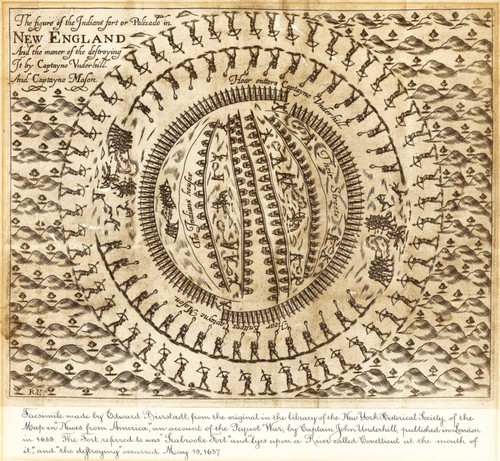 The figure of the Indians fort or Palizado in
NEW ENGLAND
And the maner of the destroying
It by Captayne Vnderhill
And Captayne Mason
Hear enters Captayne Vnderhill
The Indians houses
Their Streets
Hear Entters Captayne Mason
RH
Facsimile made by Edward Bierstadt, from the original in the library of the New York Historical Society, of the
Map in "Newes from America," an account of the Pequot War, by Captain John Underhill, published in London
in 1638. The Fort referred to was "Seabrooke Fort" and "lyes upon a River called Conetticut at the mouth of
it", and "the destroying" occurred May 19, 1637